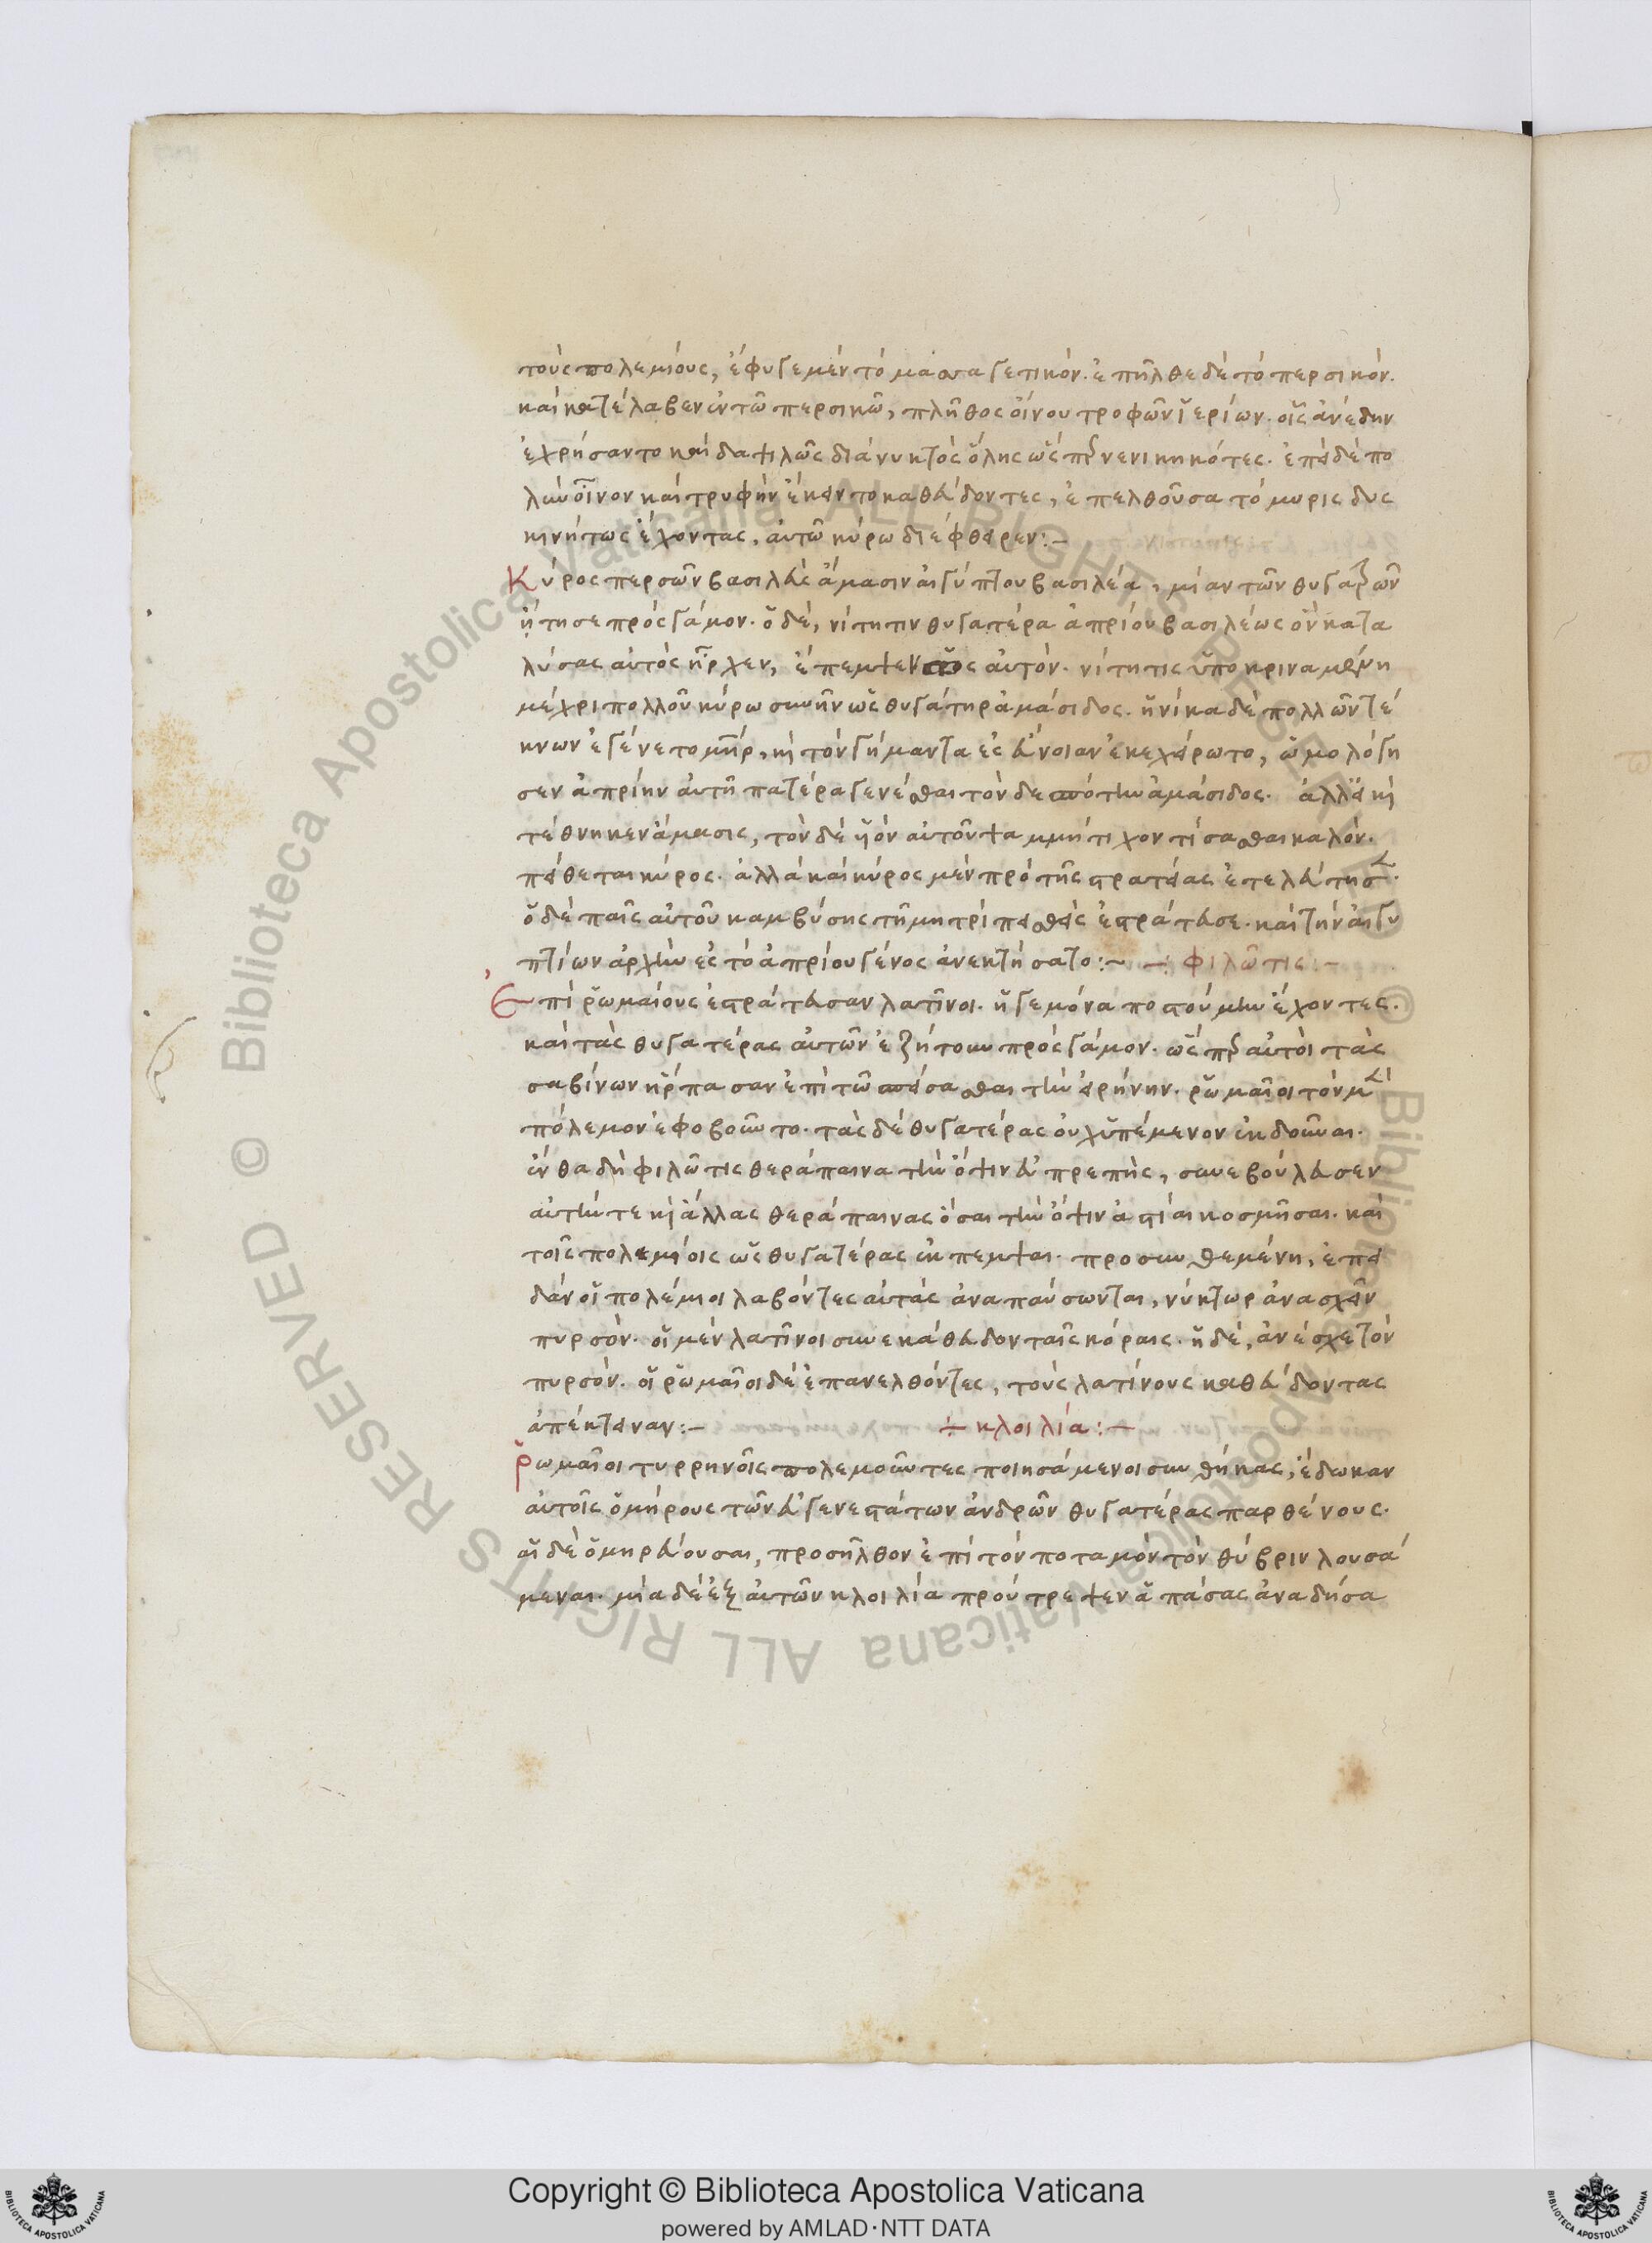 τοὺς πολεμίους, ἔφυγε μὲν τὸ μασσαγετικόν. ἐπῆλθε δὲ τὸ περσικόν.
καὶ κατέλαβεν ἐν τῶ περσικῶ, πλῆθος οἴνου τροφῶν ἱερίων. οἷς ἀνέδην
ἐχρήσαντο καὶ δαψιλῶς διὰ νυκτὸς ὅλης ὥσπερ νενικηκότες. ἐπεὶ δὲ πο
λὺν οἶνον καὶ τρυφὴν ἔκειντο καθεύδοντες, ἐπελθοῦσα τόμυρις δυς
κινήτως ἔχοντας, αὐτῶ κύρω διέφθειρεν:-
Κύρος περσῶν βασιλεὺς ἄμασιν αἰγύπτου βασιλέα, μίαν τῶν θυγατέρων
ἤτησε πρὸς γάμον. ὁ δὲ, νίτητιν θυγατέρα ἀπρίου βασιλέως ὃν κατα
λύσας αὐτὸς ἦρχεν, ἔπεμψεν πρὸς αὐτόν. νίτητις ὑποκριναμένη
μέχρι πολλοῦ κύρω συνῆν ὡς θυγάτηρ ἀμάσιδος. ἡνίκα δὲ πολλῶν τέ
κνων ἐγένετο μήτηρ, καὶ τὸν γήμαντα ἐς εὔνοιαν ἐκεχείρωτο, ὡμολόγη
σεν ἀπρίην αὐτῆ πατέρα γενέσθαι τὸν δεσπότην ἀμάσιδος. ἀλλ' ἐπεὶ καὶ
τέθνηκεν ἄμασις, τὸν δὲ υἱὸν αὐτοῦ ψαμμήτιχον τίσασθαι καλόν.
πείθεται κύρος. ἀλλὰ καὶ κύρος μὲν πρὸ τῆς στρατείας ἐτελεύτησεν.
ὁ δὲ παῖς αὐτοῦ καμβύσης τῆ μητρὶ πεισθεὶς ἐστράτευσε. καὶ τὴν αἰγυ
πτίων ἀρχὴν ἐς τὸ ἀπρίου γένος ἀνεκτήσατο:~ -: φιλῶτις:-
Ἐπὶ ῥωμαίους ἐστράτευσαν λατῖνοι. ἡγεμόνα ποστούμιν ἔχοντες.
καὶ τὰς θυγατέρας αὐτῶν ἐζήτουν πρὸς γάμον. ὥσπερ αὐτοὶ τὰς
σαβίνων ἥρπασαν ἐπὶ τῶ σπείσασθαι τὴν εἰρήνην. ῥωμαῖοι τὸν μὲν
πόλεμον ἐφοβοῦντο. τὰς δὲ θυγατέρας οὐχ ὑπέμενον ἐκδοῦναι.
ἔνθα δὴ φιλῶτις θεράπαινα τὴν ὄψιν εὐπρεπὴς, συνεβούλευσεν
αὐτήν τε καὶ ἄλλας θεράπαινας ὅσαι τὴν ὄψιν ἀστίαι κοσμῆσαι. καὶ
τοῖς πολεμίοις ὡς θυγατέρας ἐκπεμψαι. προσσυνθεμένη, ἐπει
δὰν οἱ πολέμιοι λαβόντες αὐτὰς ἀναπαύσωνται, νύκτωρ ἀνασχεῖν
πυρσόν. οἱ μὲν λατῖνοι συνεκάθευδον ταῖς κόραις. ἡ δὲ, ἀνέσχε τὸν
πυρσόν. οἱ ῥωμαῖοι δὲ ἐπανελθόντες, τοὺς λατίνους καθεύδοντας
ἀπέκτειναν:- ÷ κλοιλία:-
Ῥωμαῖοι τυρρηνοῖς πολεμοῦντες ποιησάμενοι συνθήκας, ἔδωκαν
αὐτοῖς ὁμήρους τῶν εὐγενεστάτων ἀνδρῶν θυγατέρας παρθένους.
αἱ δὲ ὁμηρεύουσαι, προσῆλθον ἐπὶ τὸν ποταμὸν τὸν θύβριν λουσά
μεναι. μία δὲ ἐξ αὐτῶν κλοιλία προύτρεψεν ἁπάσας ἀναδήσα
Copyright © Biblioteca Apostolica Vaticana
powered by AMLAD·NTT DATA